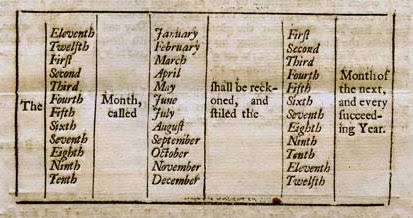 The
Eleventh
Twelfth
Firſt
Second
Third
Fourth
Fifth
Sixth
Seventh
Eighth
Ninth
Tenth
Month,
called
January
February
March
April
May
June
July
Auguſt
September
October
November
December
ſhall be reck-
oned, and
ſtiled the
Firſt
Second
Third
Fourth
Fifth
Sixth
Seventh
Eighth
Ninth
Tenth
Eleventh
Twelfth
Month of
the next,
and every
ſucceed-
ing Year.